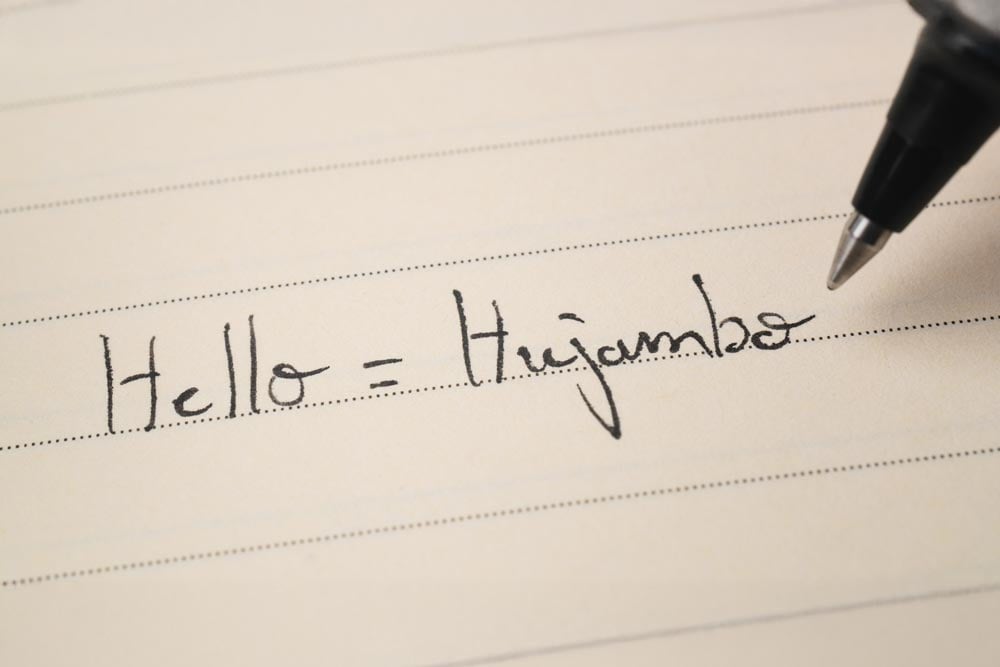 Hello = Hujambo